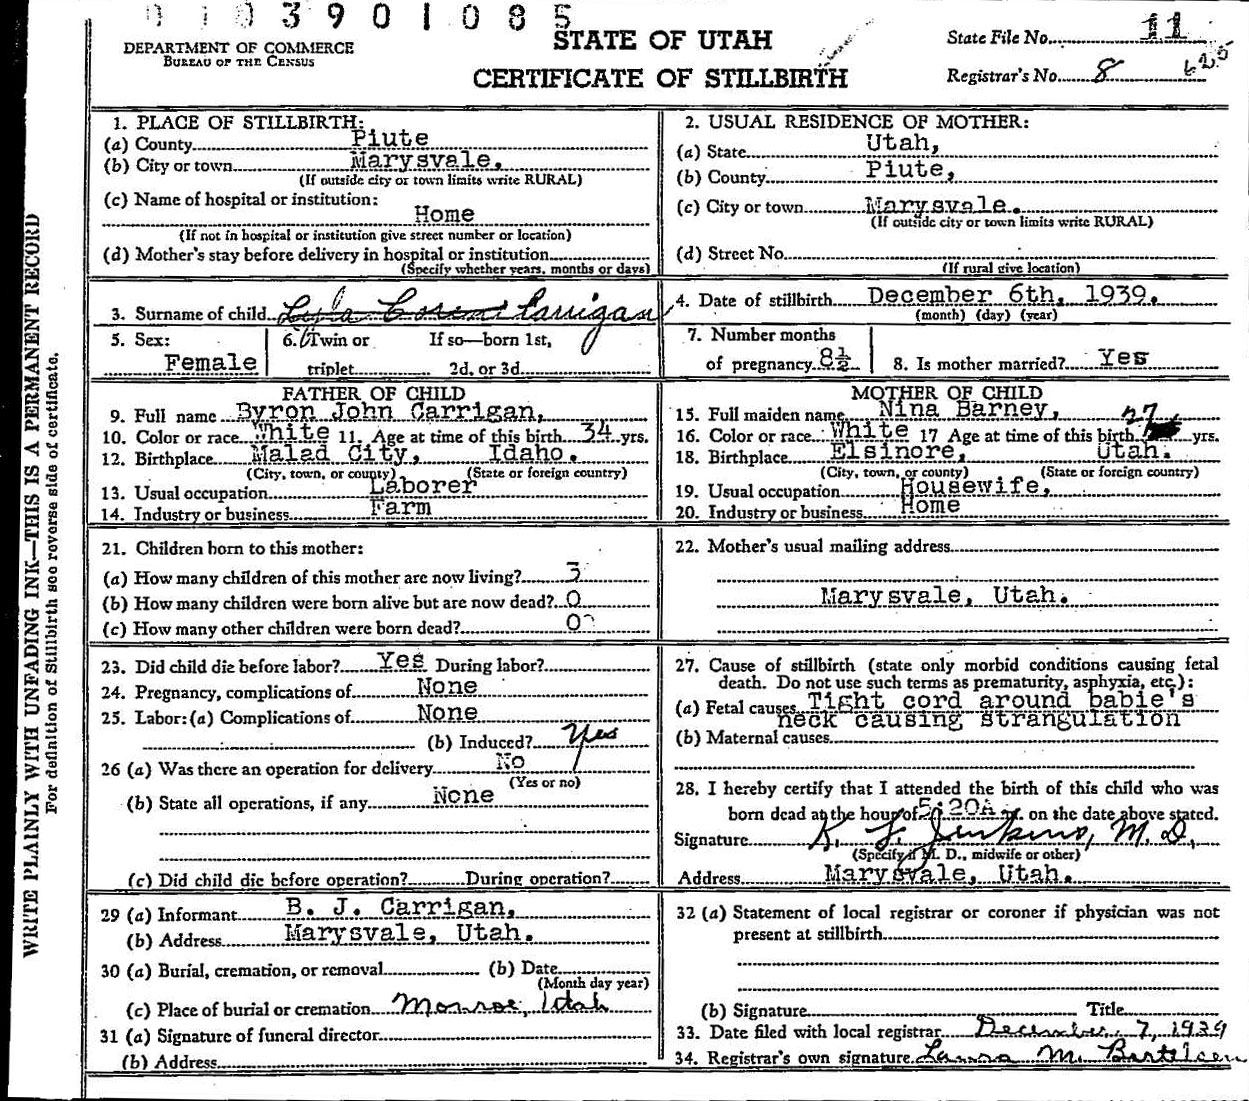 0 1 0 3 9 0 1 0 8 5
DEPARTMENT OF COMMERCE
BUREAU OF THE CENSUS
STATE OF UTAH
CERTIFICATE OF STILLBIRTH
State File No. 11
Registrar's No. 8 625
WRITE PLAINLY WITH UNFADING INK—THIS IS A PERMANENT RECORD
For definition of Stillbirth see reverse side of certificate.
1. PLACE OF STILLBIRTH:
(a) County Piute
(b) City or town Marysvale,
(If outside city or town limits write RURAL)
(c) Name of hospital or institution:
Home
(If not in hospital or institution give street number or location)
(d) Mother's stay before delivery in hospital or institution
(Specify whether years, months or days)
2. USUAL RESIDENCE OF MOTHER:
(a) State Utah,
(b) County Piute,
(c) City or town Marysvale.
(If outside city or town limits write RURAL)
(d) Street No.
(If rural give location)
3. Surname of child Carrigan
4. Date of stillbirth December 6th, 1939.
(month) (day) (year)
5. Sex:
Female
6. Twin or If so—born 1st,
triplet 2d, or 3d
7. Number months
of pregnancy 8½
8. Is mother married? Yes
FATHER OF CHILD
9. Full name Byron John Carrigan,
10. Color or race White 11. Age at time of this birth 34 yrs.
12. Birthplace Malad City, Idaho.
(City, town, or county) (State or foreign country)
13. Usual occupation Laborer
14. Industry or business Farm
MOTHER OF CHILD
15. Full maiden name Nina Barney,
16. Color or race White 17 Age at time of this birth 27 yrs.
18. Birthplace Elsinore, Utah.
(City, town, or county) (State or foreign country)
19. Usual occupation Housewife,
20. Industry or business Home
21. Children born to this mother:
(a) How many children of this mother are now living? 3
(b) How many children were born alive but are now dead? 0
(c) How many other children were born dead? 0
22. Mother's usual mailing address
Marysvale, Utah.
23. Did child die before labor? Yes During labor?
24. Pregnancy, complications of None
25. Labor: (a) Complications of None
(b) Induced? Yes
26 (a) Was there an operation for delivery No
(Yes or no)
(b) State all operations, if any None
(c) Did child die before operation? During operation?
27. Cause of stillbirth (state only morbid conditions causing fetal
death. Do not use such terms as prematurity, asphyxia, etc.):
(a) Fetal causes Tight cord around babie's
neck causing strangulation
(b) Maternal causes
28. I hereby certify that I attended the birth of this child who was
born dead at the hour of 5:20A M. on the date above stated.
Signature K. J. Jenkins, M. D.
(Specify if M. D., midwife or other)
Address Marysvale, Utah.
29 (a) Informant B. J. Carrigan,
(b) Address Marysvale, Utah.
30 (a) Burial, cremation, or removal (b) Date
(Month day year)
(c) Place of burial or cremation Monroe, Utah
31 (a) Signature of funeral director
(b) Address
32 (a) Statement of local registrar or coroner if physician was not
present at stillbirth
(b) Signature Title
33. Date filed with local registrar December 7, 1939
34. Registrar's own signature Laura M. Bertelsen